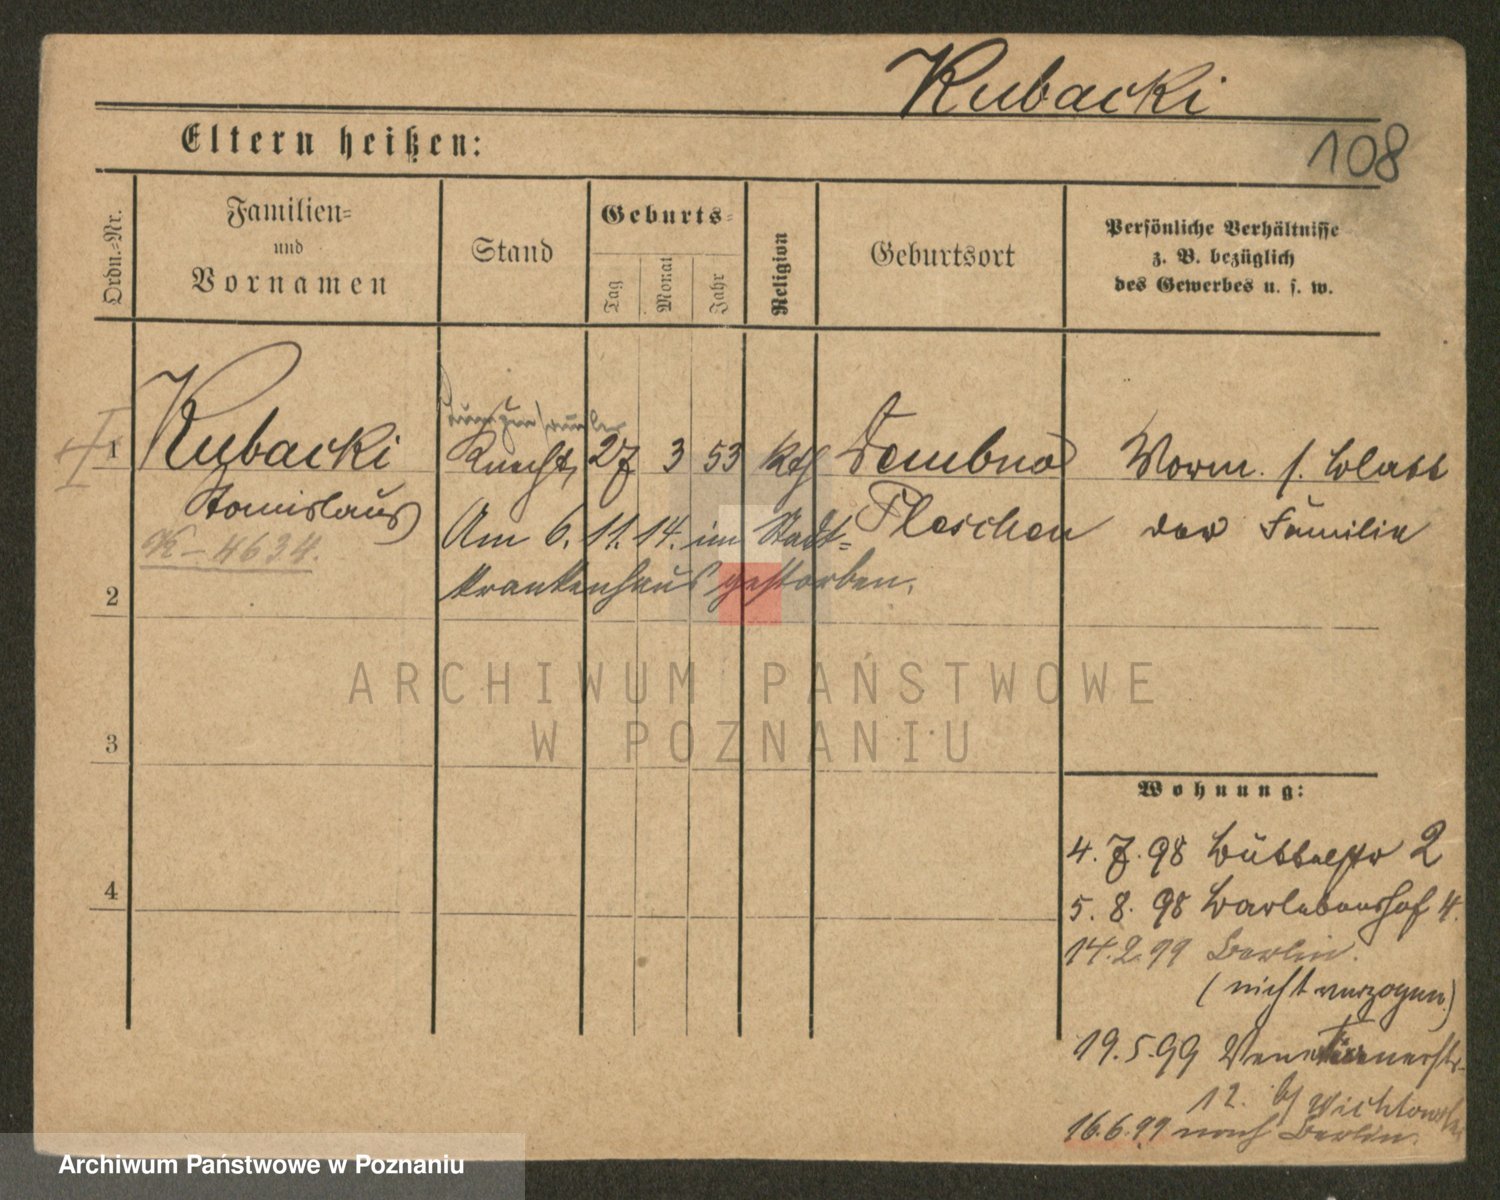 Kubacki
108
Eltern heißen:
Ordn.-Nr.
Familien-
und
Vornamen
Stand
Geburts-
Tag
Monat
Jahr
Religion
Geburtsort
Persönliche Verhältnisse
z. B. bezüglich
des Gewerbes u. s. w.
1 Kubacki Knecht, 27 3 53 kth Dembno Worm. s. Blatt
Stanislaus Pleschen der Familie
K-4634. Am 6. 11. 14. im Stadt-
krankenhaus gestorben.
2
3
4
Wohnung:
4. 7. 98 Büttelstr 2
5. 8. 98 Barlebenshof 4.
14. 2. 99 Berlin.
(nicht verzogen)
19. 5. 99 Venetianerstr.
12. by
16. 6. 99 nach Berlin.
ARCHIWUM PAŃSTWOWE
W POZNANIU
Archiwum Państwowe w Poznaniu